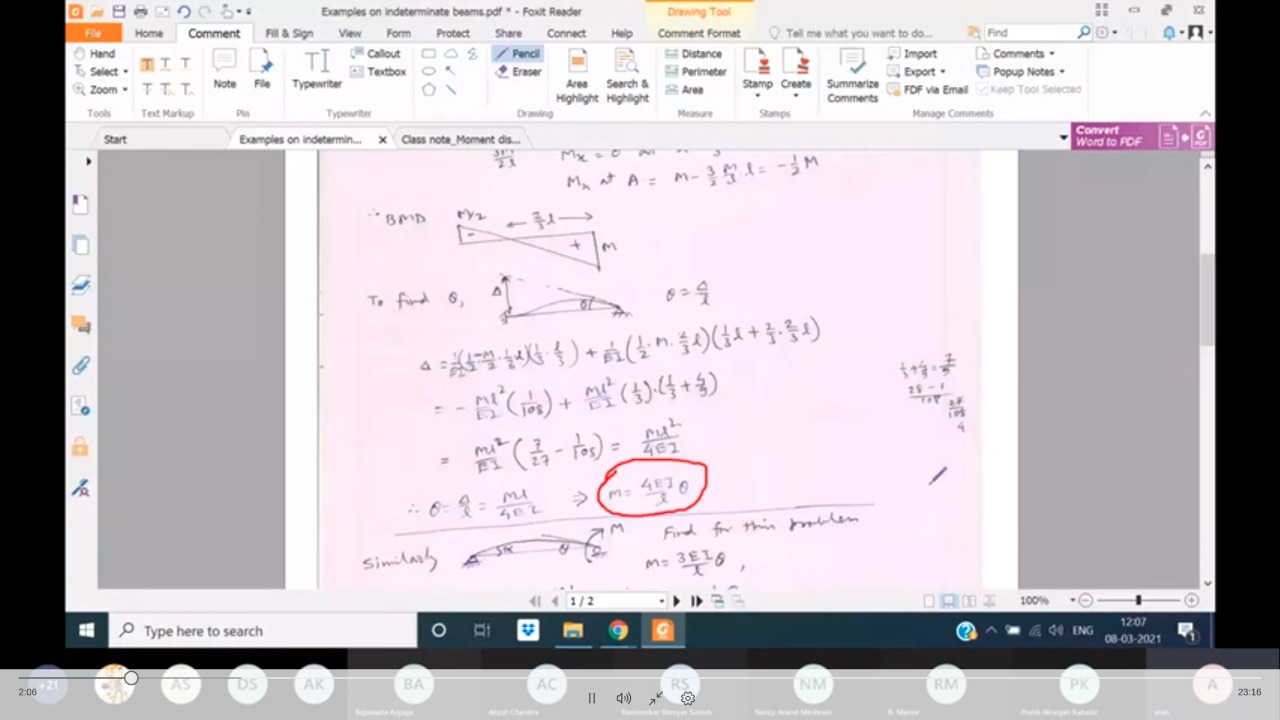 Examples on indeterminate beams.pdf * - Foxit Reader
Drawing Tool
File Home Comment Fill & Sign View Form Protect Share Connect Help Comment Format Tell me what you want to do... Find
Hand Select Zoom
Tools
Text Markup
Note
Pin
File
Typewriter
Callout
Textbox
Typewriter
Pencil
Eraser
Drawing
Area Highlight
Search & Highlight
Distance
Perimeter
Area
Measure
Stamp
Create
Stamps
Summarize Comments
Import
Export
FDF via Email
Comments
Popup Notes
Keep Tool Selected
Manage Comments
Start
Examples on indetermin...
Class note_Moment dis...
Convert Word to PDF
Mx at A = M - 3/2 M/l l = -1/2 M
∴ BMD M/2 2/3 l
- + M
To find θ, Δ θ θ = Δ/l
= - Ml²/EI (1/108) + Ml²/EI (1/3)·(1/3 + 4/9)
= Ml²/EI (7/27 - 1/108) = Ml²/4EI
∴ θ = Δ/l = Ml/4EI ⇒ M = 4EI/l θ
Similarly θ M Find for this problem
M = 3EI/l θ ,
1 / 2
100%
Type here to search
ENG
12:07
08-03-2021
+21 AS DS AK BA AC RS NM RM PK A
2:06
23:16
Akash Chandra
Nancy Anand Meshram